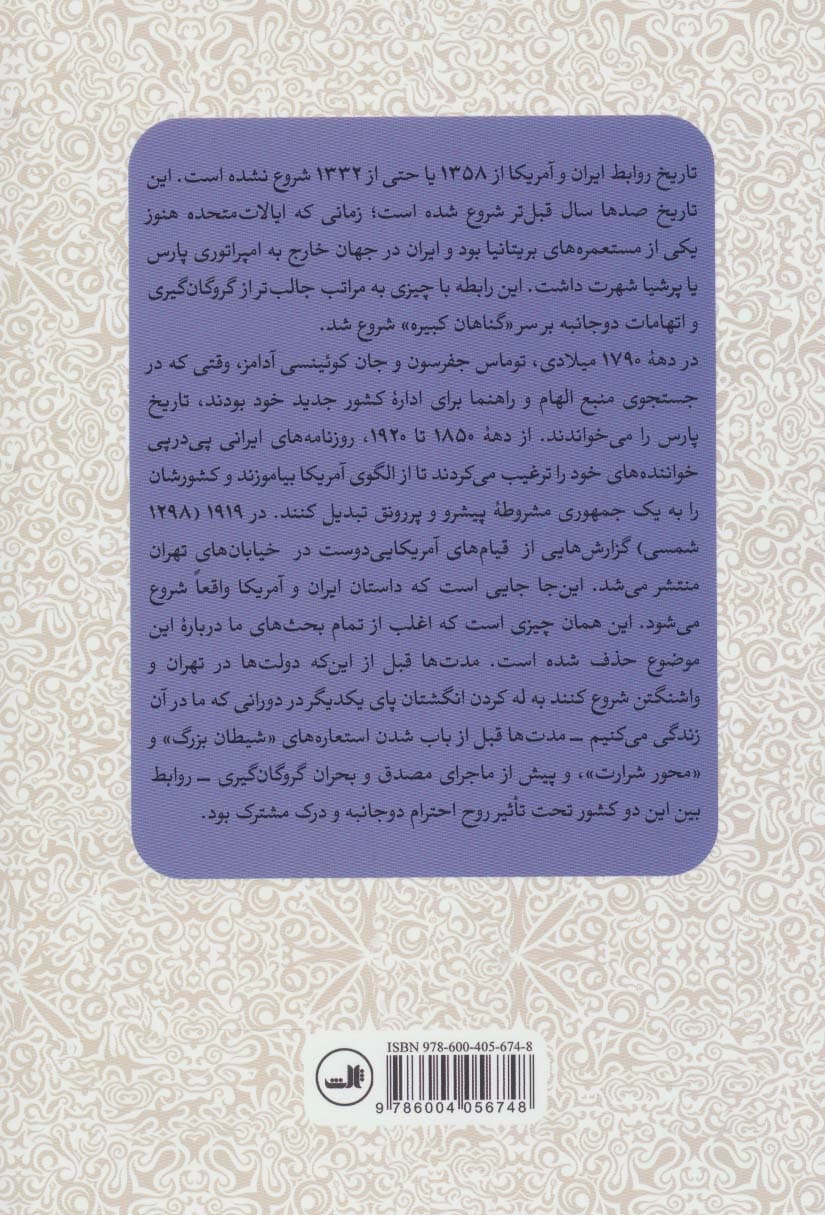 تاریخ روابط ایران و آمریکا از ۱۳۵۸ یا حتی از ۱۳۳۲ شروع نشده است. این
تاریخ صدها سال قبل‌تر شروع شده است؛ زمانی که ایالات‌متحده هنوز
یکی از مستعمره‌های بریتانیا بود و ایران در جهان خارج به امپراتوری پارس
یا پرشیا شهرت داشت. این رابطه با چیزی به مراتب جالب‌تر از گروگان‌گیری
و اتهامات دوجانبه بر سر «گناهان کبیره» شروع شد.
در دههٔ ۱۷۹۰ میلادی، توماس جفرسون و جان کوئینسی آدامز، وقتی که در
جستجوی منبع الهام و راهنما برای ادارهٔ کشور جدید خود بودند، تاریخ
پارس را می‌خواندند. از دههٔ ۱۸۵۰ تا ۱۹۲۰، روزنامه‌های ایرانی پی‌درپی
خواننده‌های خود را ترغیب می‌کردند تا از الگوی آمریکا بیاموزند و کشورشان
را به یک جمهوری مشروطهٔ پیشرو و پررونق تبدیل کنند. در ۱۹۱۹ (۱۲۹۸
شمسی) گزارش‌هایی از قیام‌های آمریکایی‌دوست در خیابان‌های تهران
منتشر می‌شد. این‌جا جایی است که داستان ایران و آمریکا واقعاً شروع
می‌شود. این همان چیزی است که اغلب از تمام بحث‌های ما دربارهٔ این
موضوع حذف شده است. مدت‌ها قبل از این‌که دولت‌ها در تهران و
واشنگتن شروع کنند به له کردن انگشتان پای یکدیگر در دورانی که ما در آن
زندگی می‌کنیم ــ مدت‌ها قبل از باب شدن استعاره‌های «شیطان بزرگ» و
«محور شرارت»، و پیش از ماجرای مصدق و بحران گروگان‌گیری ــ روابط
بین این دو کشور تحت تأثیر روح احترام دوجانبه و درک مشترک بود.
ISBN 978-600-405-674-8
ثالث
9 786004 056748